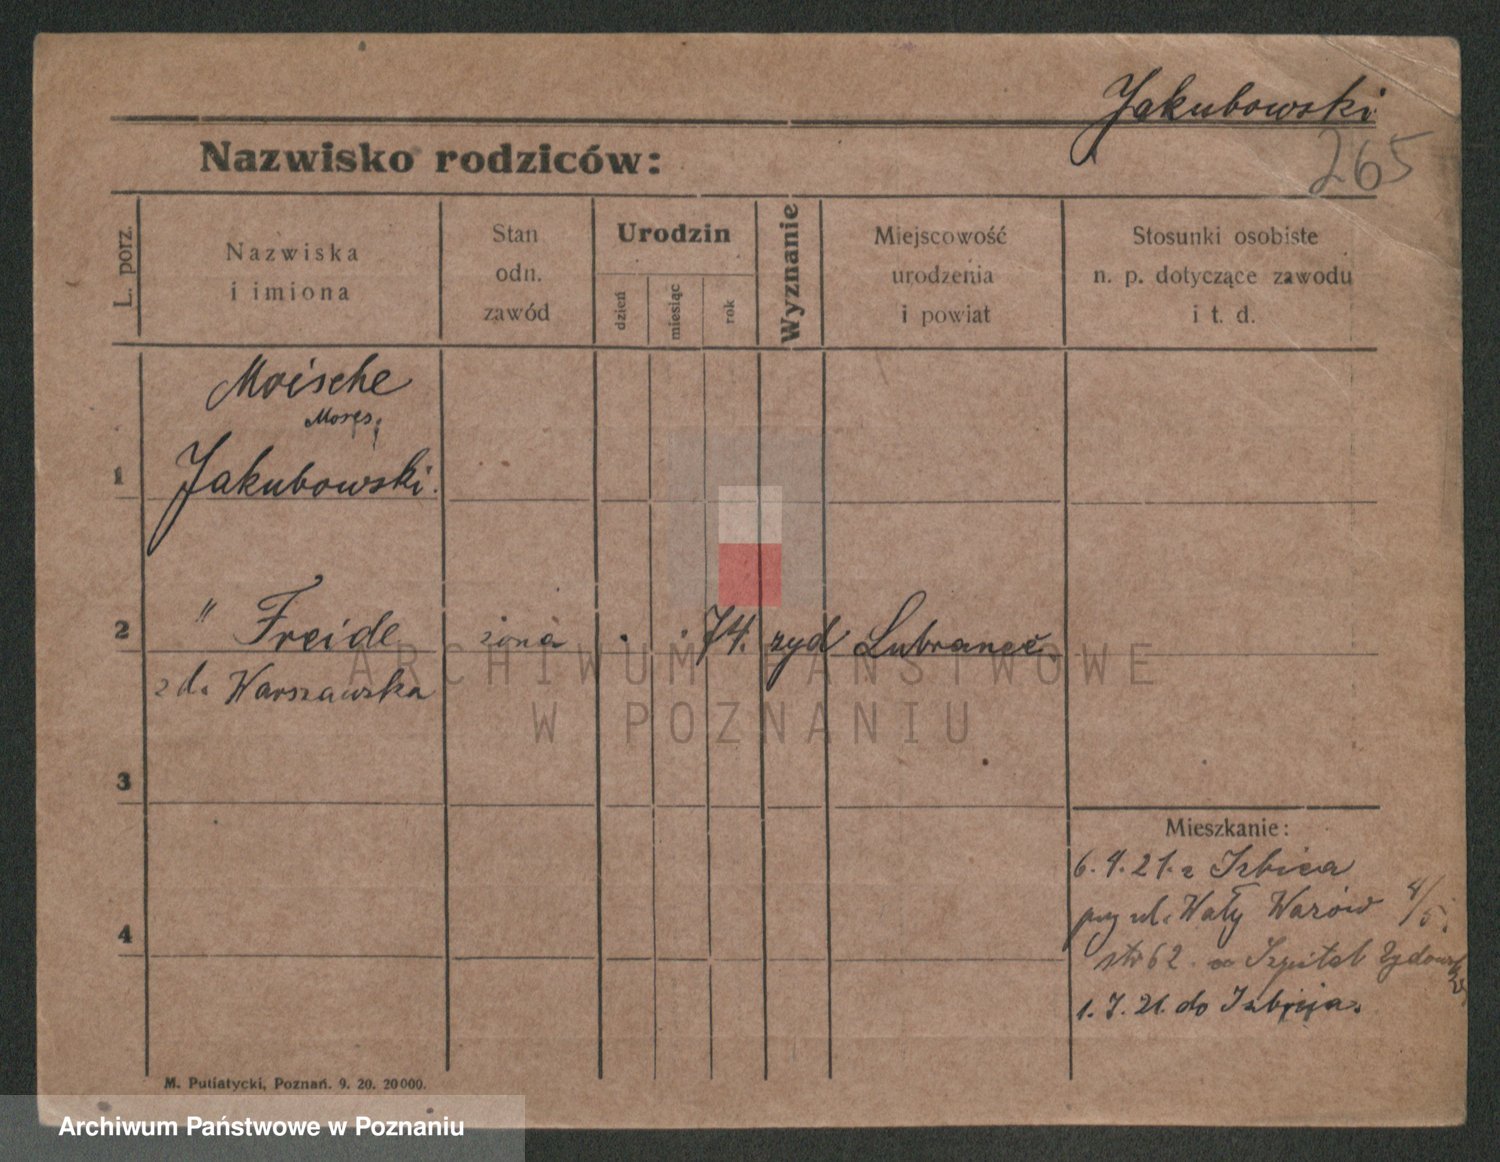 Jakubowski
265
Nazwisko rodziców:
L. porz.
Nazwiska
i imiona
Stan
odn.
zawód
Urodzin
dzień
miesiąc
rok
Wyznanie
Miejscowość
urodzenia
i powiat
Stosunki osobiste
n. p. dotyczące zawodu
i t. d.
Moische
Moses
1 Jakubowski.
2 " Freide żona . . 74. zyd Lubraneč
z d. Warszawska
3
4
Mieszkanie:
6. 4. 21. z Izbica
przy ul. Wały Wazów 4/5.
str 62 Szpital
1. 7. 21. do Izbicja.
M. Putiatycki, Poznań. 9. 20. 20000.
ARCHIWUM PAŃSTWOWE
W POZNANIU
Archiwum Państwowe w Poznaniu